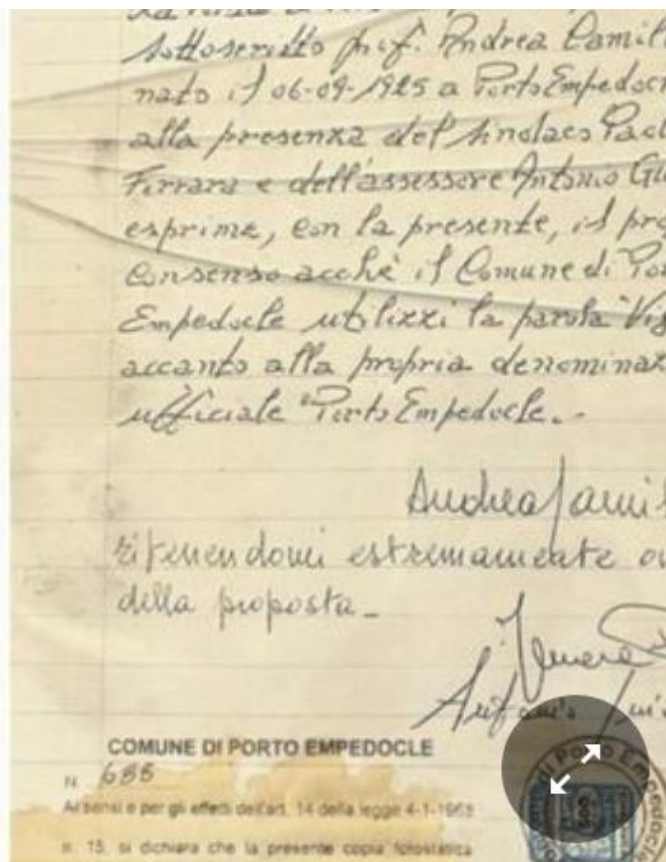 sottoscritto prof. Andrea Camil
nato il 06-09-1925 a Porto Empedoc
alla presenza del sindaco Pao
Ferrara e dell'assessore Antonio Gu
esprime, con la presente, il pro
consenso acchè il Comune di Por
Empedocle utilizzi la parola "Vig
accanto alla propria denominaz
ufficiale "Porto Empedocle.-
Andrea Cami
ritenendomi estremamente o
della proposta_
COMUNE DI PORTO EMPEDOCLE
N. 685
Ai sensi e per gli effetti dell'art. 14 della legge 4-1-1968
n. 15, si dichiara che la presente copia fotostatica
di Porto Empedocle